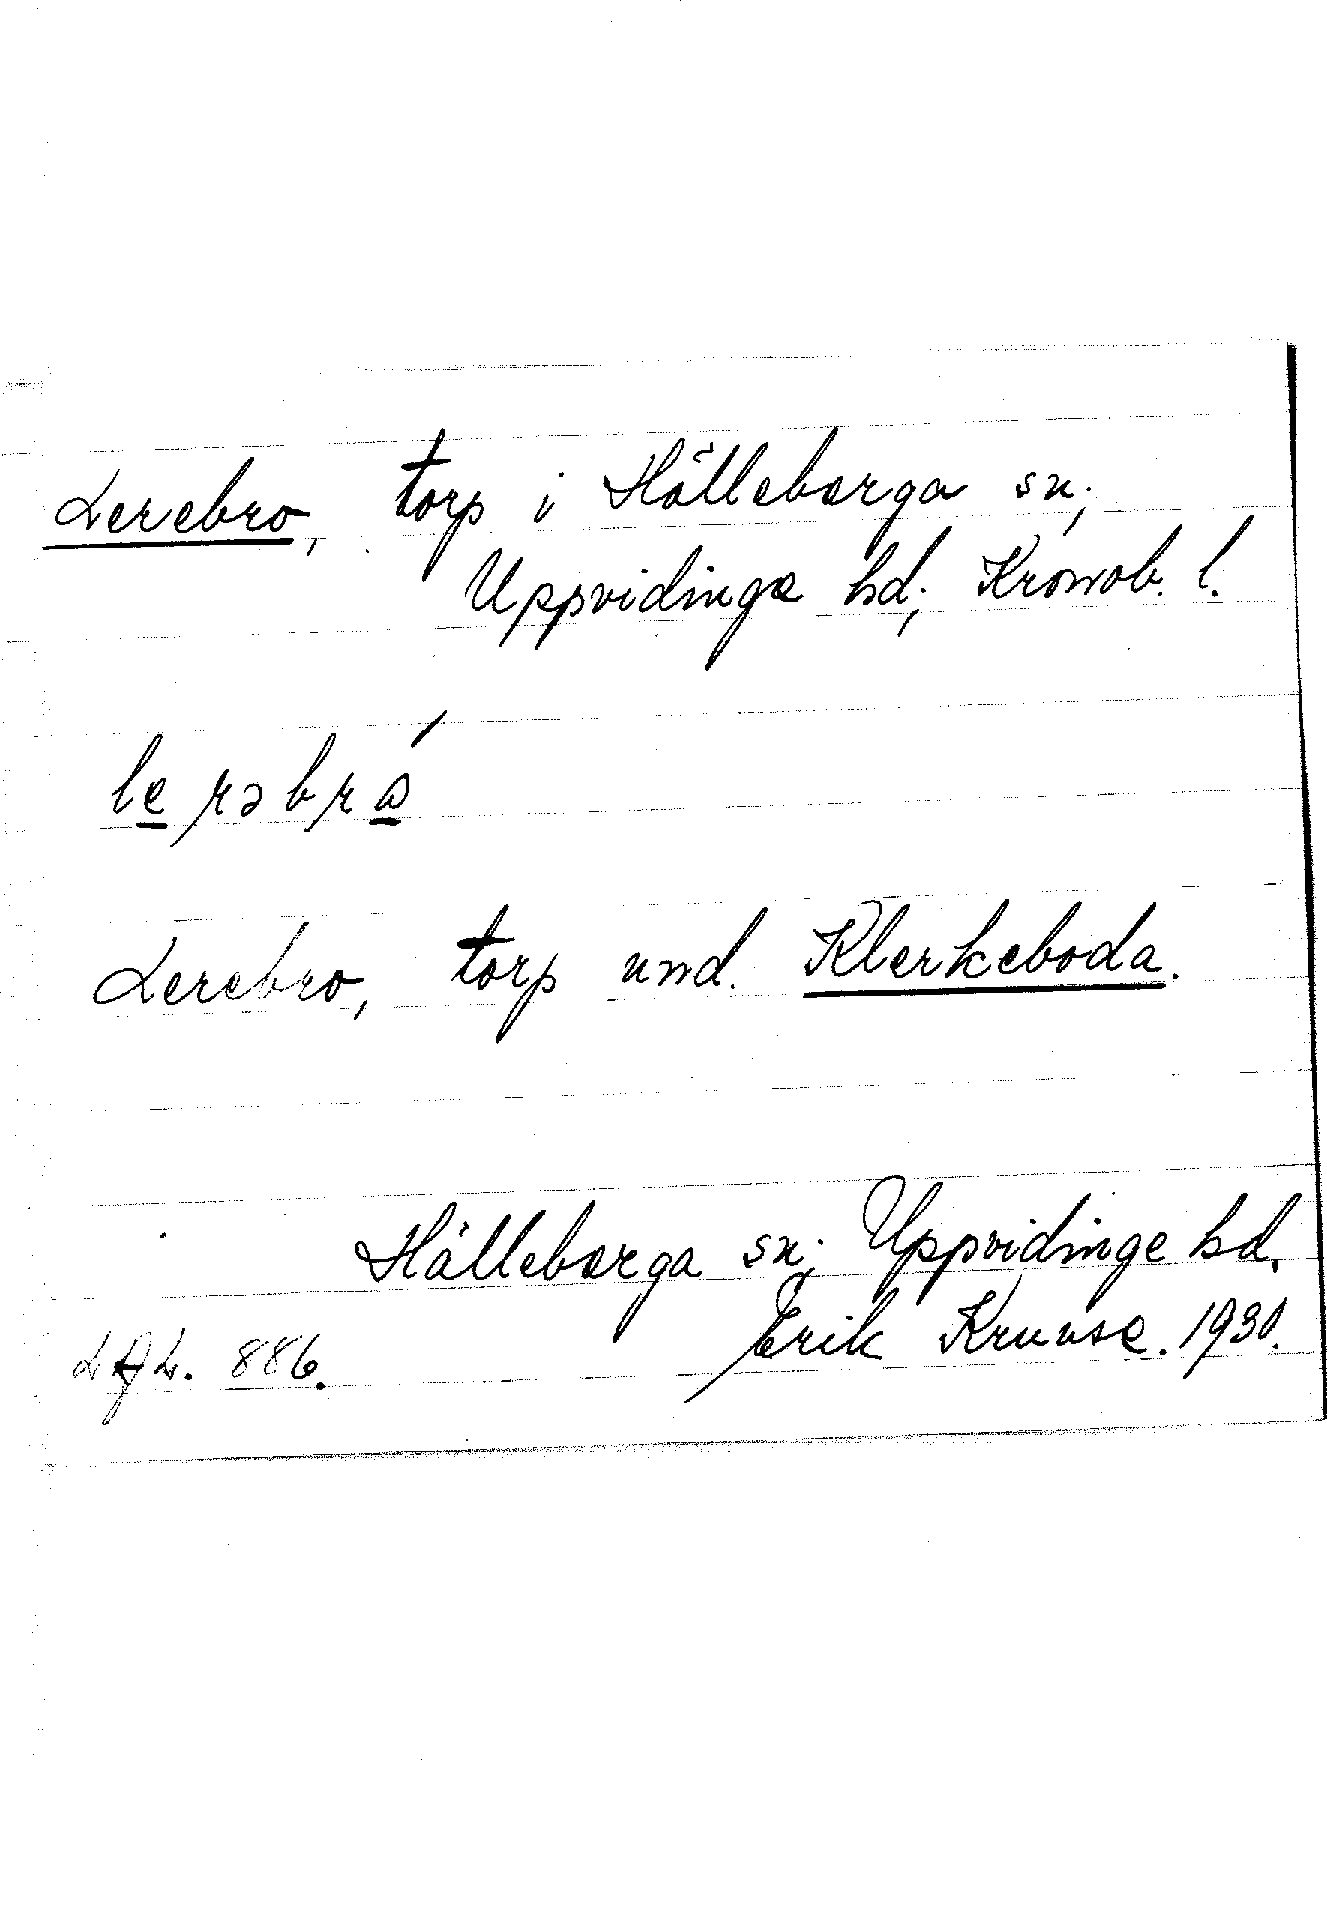 Lerebro, torp i Hälleberga sn;
Uppvidinge hd; Kronob. l.
lerəbrω´
Lerebro, torp und. Klerkeboda.
Hälleberga sn; Uppvidinge hd.
Erik Kruuse. 1930.
LAL. 886.